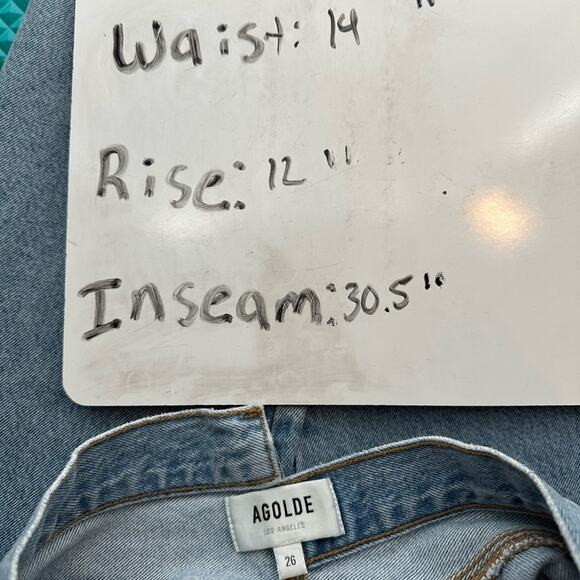 Waist: 14 "
Rise: 12 "
Inseam: 30.5"
AGOLDE
LOS ANGELES
26